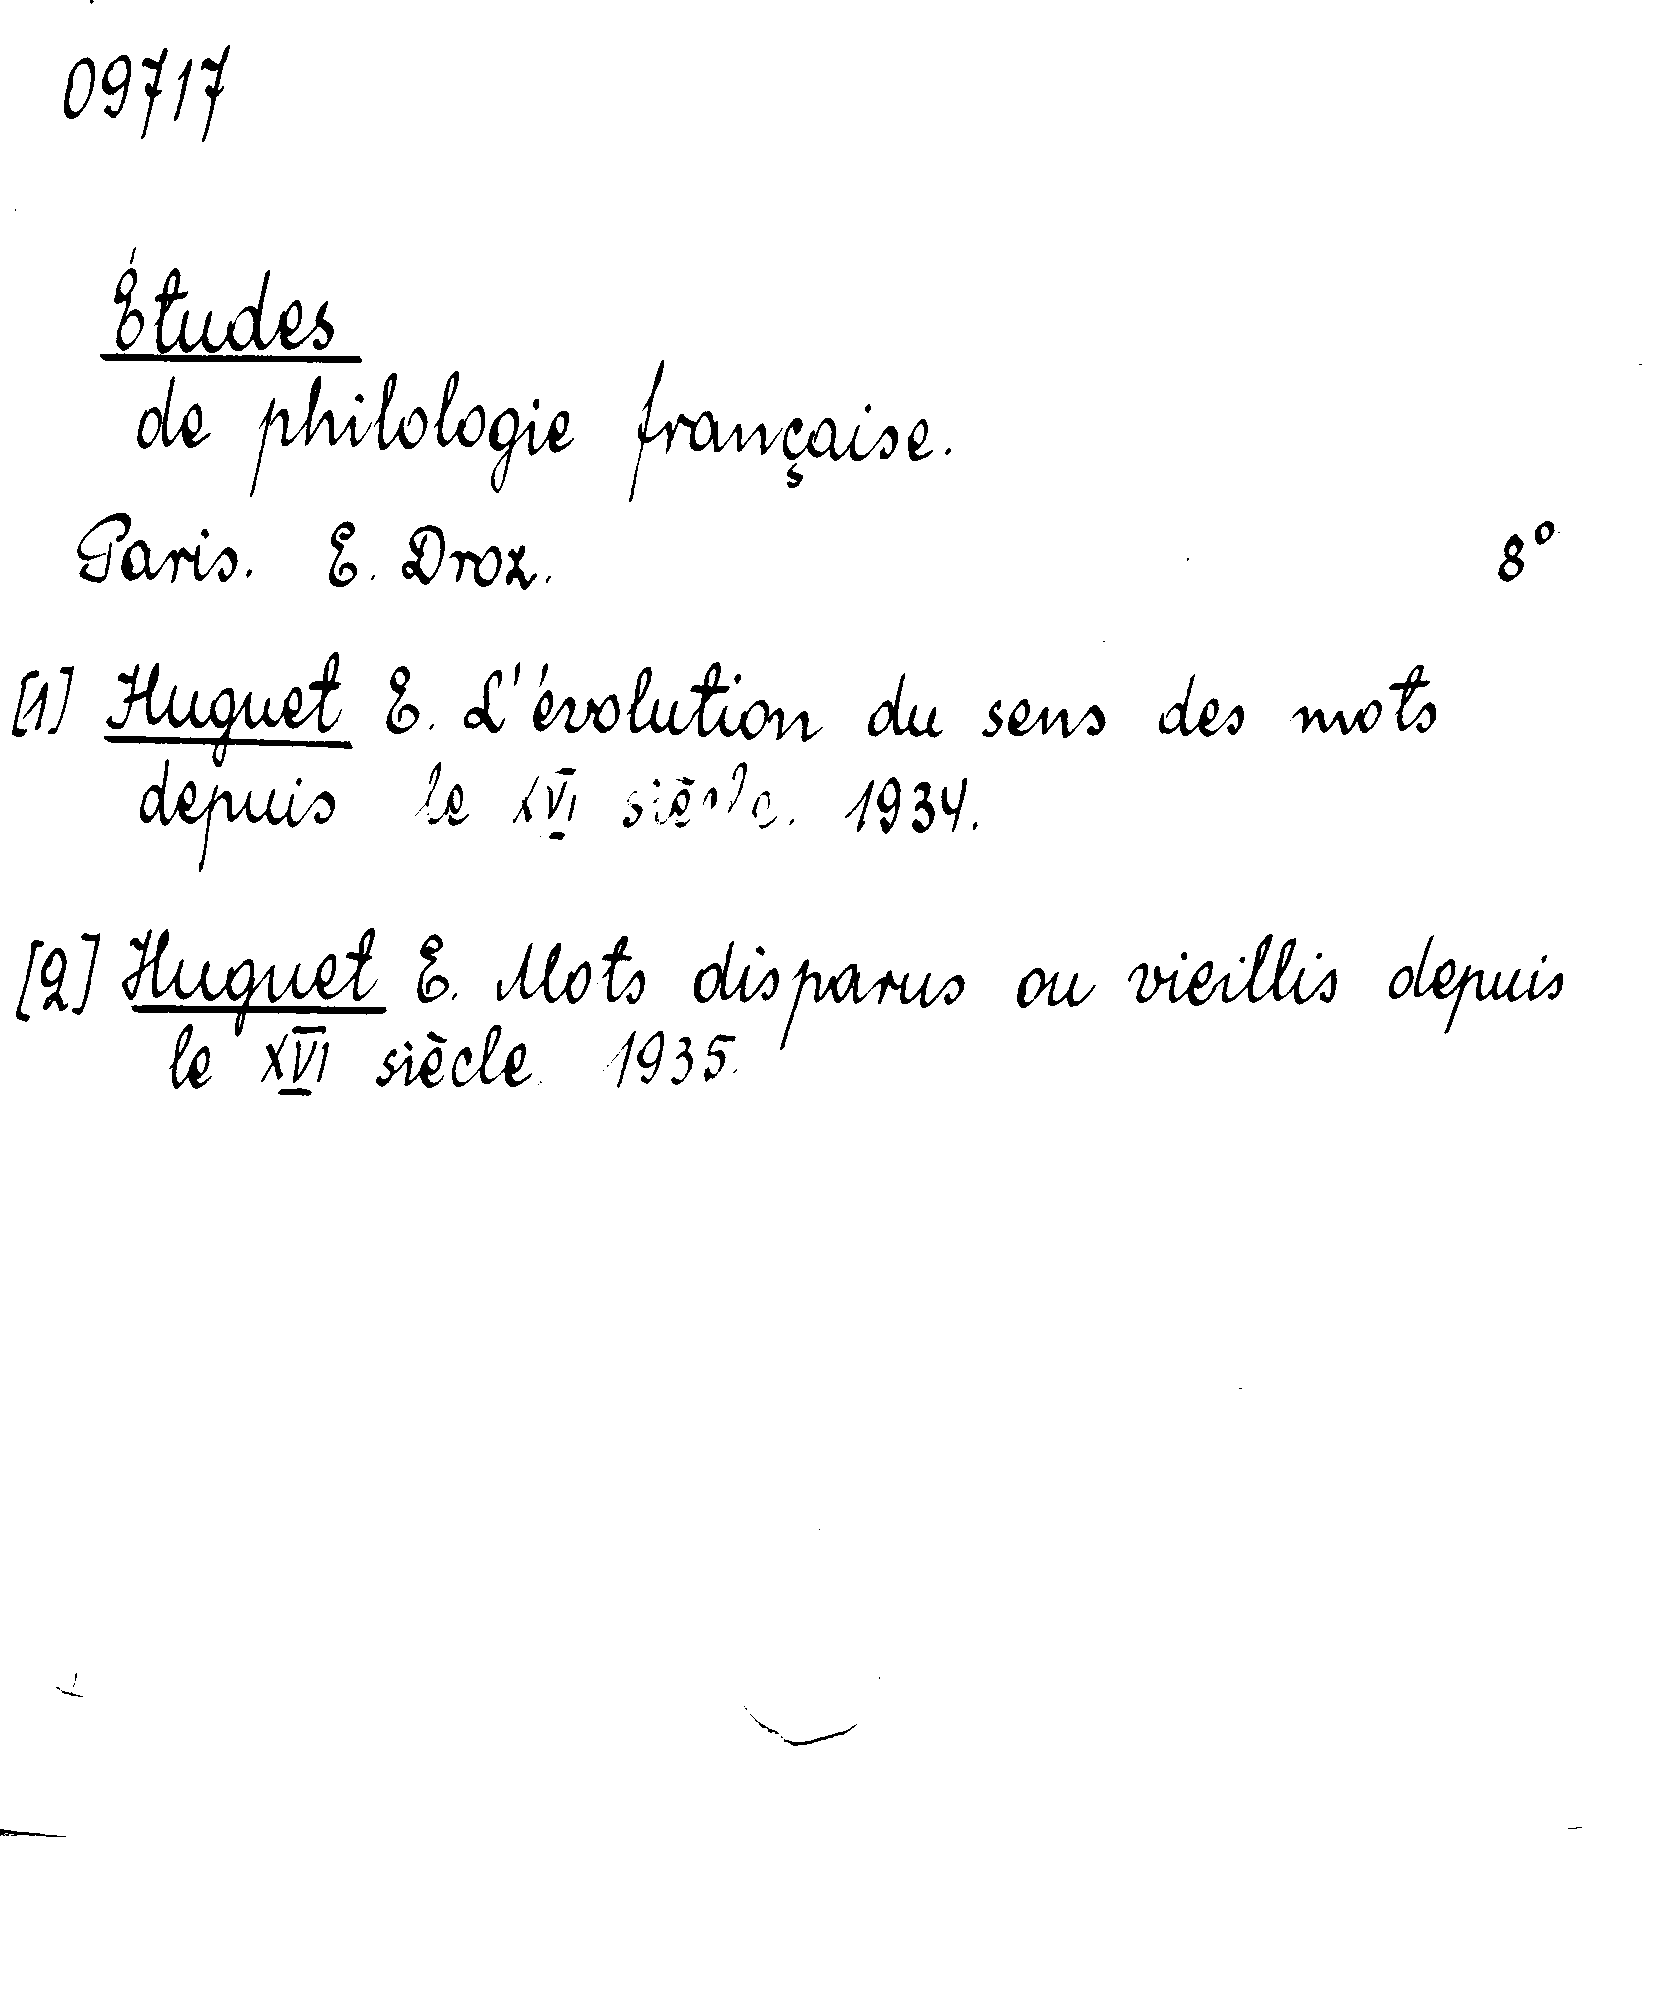 09717
Études
de philologie française.
Paris. E. Droz. 8°
[1] Huguet E. L'évolution du sens des mots
depuis le XVI siècle. 1934.
[2] Huguet E. Mots disparus ou vieillis depuis
le XVI siècle. 1935.